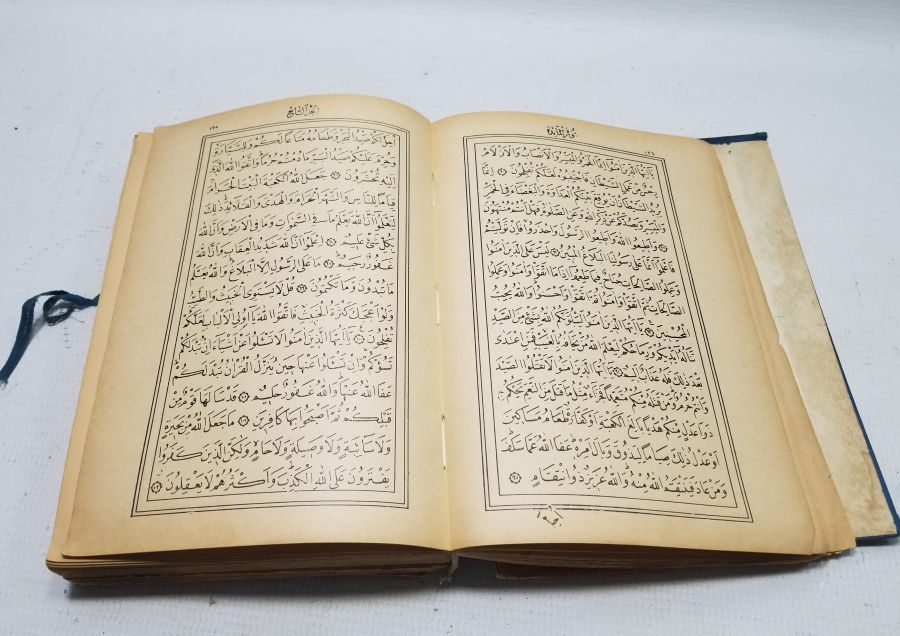 سورة المائدة
١٢٤
يَا أَيُّهَا الَّذِينَ آمَنُوا إِنَّمَا الْخَمْرُ وَالْمَيْسِرُ وَالْأَنْصَابُ وَالْأَزْلَامُ
رِجْسٌ مِنْ عَمَلِ الشَّيْطَانِ فَاجْتَنِبُوهُ لَعَلَّكُمْ تُفْلِحُونَ ٩٠ إِنَّمَا
يُرِيدُ الشَّيْطَانُ أَنْ يُوقِعَ بَيْنَكُمُ الْعَدَاوَةَ وَالْبَغْضَاءَ فِي الْخَمْرِ
وَالْمَيْسِرِ وَيَصُدَّكُمْ عَنْ ذِكْرِ اللَّهِ وَعَنِ الصَّلَوةِ فَهَلْ أَنْتُمْ مُنْتَهُونَ
٩١ وَأَطِيعُوا اللَّهَ وَأَطِيعُوا الرَّسُولَ وَاحْذَرُوا فَإِنْ تَوَلَّيْتُمْ
فَاعْلَمُوا أَنَّمَا عَلَى رَسُولِنَا الْبَلَاغُ الْمُبِينُ ٩٢ لَيْسَ عَلَى الَّذِينَ آمَنُوا
وَعَمِلُوا الصَّالِحَاتِ جُنَاحٌ فِيمَا طَعِمُوا إِذَا مَا اتَّقَوْا وَآمَنُوا وَعَمِلُوا
الصَّالِحَاتِ ثُمَّ اتَّقَوْا وَآمَنُوا ثُمَّ اتَّقَوْا وَأَحْسَنُوا وَاللَّهُ يُحِبُّ
الْمُحْسِنِينَ ٩٣ يَا أَيُّهَا الَّذِينَ آمَنُوا لَيَبْلُوَنَّكُمُ اللَّهُ بِشَيْءٍ مِنَ الصَّيْدِ
تَنَالُهُ أَيْدِيكُمْ وَرِمَاحُكُمْ لِيَعْلَمَ اللَّهُ مَنْ يَخَافُهُ بِالْغَيْبِ فَمَنِ اعْتَدَى
بَعْدَ ذَلِكَ فَلَهُ عَذَابٌ أَلِيمٌ ٩٤ يَا أَيُّهَا الَّذِينَ آمَنُوا لَا تَقْتُلُوا الصَّيْدَ
وَأَنْتُمْ حُرُمٌ وَمَنْ قَتَلَهُ مِنْكُمْ مُتَعَمِّدًا فَجَزَاءٌ مِثْلُ مَا قَتَلَ مِنَ النَّعَمِ يَحْكُمُ بِهِ
ذَوَا عَدْلٍ مِنْكُمْ هَدْيًا بَالِغَ الْكَعْبَةِ أَوْ كَفَّارَةٌ طَعَامُ مَسَاكِينَ
أَوْ عَدْلُ ذَلِكَ صِيَامًا لِيَذُوقَ وَبَالَ أَمْرِهِ عَفَا اللَّهُ عَمَّا سَلَفَ
وَمَنْ عَادَ فَيَنْتَقِمُ اللَّهُ مِنْهُ وَاللَّهُ عَزِيزٌ ذُو انْتِقَامٍ ٩٥
الجزء السابع
١٢٥
أُحِلَّ لَكُمْ صَيْدُ الْبَحْرِ وَطَعَامُهُ مَتَاعًا لَكُمْ وَلِلسَّيَّارَةِ
وَحُرِّمَ عَلَيْكُمْ صَيْدُ الْبَرِّ مَا دُمْتُمْ حُرُمًا وَاتَّقُوا اللَّهَ الَّذِي
إِلَيْهِ تُحْشَرُونَ ٩٦ جَعَلَ اللَّهُ الْكَعْبَةَ الْبَيْتَ الْحَرَامَ
قِيَامًا لِلنَّاسِ وَالشَّهْرَ الْحَرَامَ وَالْهَدْيَ وَالْقَلَائِدَ ذَلِكَ
لِتَعْلَمُوا أَنَّ اللَّهَ يَعْلَمُ مَا فِي السَّمَوَاتِ وَمَا فِي الْأَرْضِ وَأَنَّ اللَّهَ
بِكُلِّ شَيْءٍ عَلِيمٌ ٩٧ اعْلَمُوا أَنَّ اللَّهَ شَدِيدُ الْعِقَابِ وَأَنَّ اللَّهَ
غَفُورٌ رَحِيمٌ ٩٨ مَا عَلَى الرَّسُولِ إِلَّا الْبَلَاغُ وَاللَّهُ يَعْلَمُ
مَا تُبْدُونَ وَمَا تَكْتُمُونَ ٩٩ قُلْ لَا يَسْتَوِي الْخَبِيثُ وَالطَّيِّبُ
وَلَوْ أَعْجَبَكَ كَثْرَةُ الْخَبِيثِ فَاتَّقُوا اللَّهَ يَا أُولِي الْأَلْبَابِ لَعَلَّكُمْ
تُفْلِحُونَ ١٠٠ يَا أَيُّهَا الَّذِينَ آمَنُوا لَا تَسْأَلُوا عَنْ أَشْيَاءَ إِنْ تُبْدَ لَكُمْ
تَسُؤْكُمْ وَإِنْ تَسْأَلُوا عَنْهَا حِينَ يُنَزَّلُ الْقُرْآنُ تُبْدَ لَكُمْ
عَفَا اللَّهُ عَنْهَا وَاللَّهُ غَفُورٌ حَلِيمٌ ١٠١ قَدْ سَأَلَهَا قَوْمٌ مِنْ
قَبْلِكُمْ ثُمَّ أَصْبَحُوا بِهَا كَافِرِينَ ١٠٢ مَا جَعَلَ اللَّهُ مِنْ بَحِيرَةٍ
وَلَا سَائِبَةٍ وَلَا وَصِيلَةٍ وَلَا حَامٍ وَلَكِنَّ الَّذِينَ كَفَرُوا
يَفْتَرُونَ عَلَى اللَّهِ الْكَذِبَ وَأَكْثَرُهُمْ لَا يَعْقِلُونَ ١٠٣